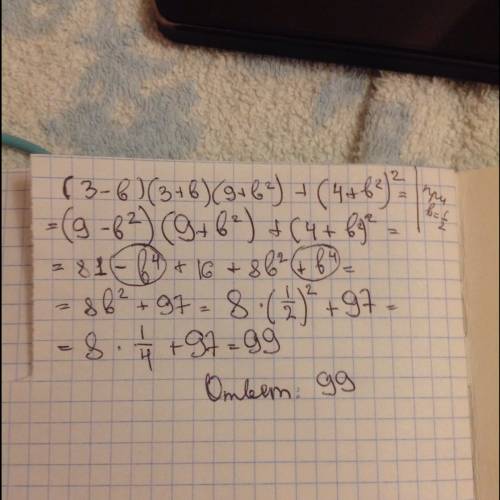 (3-в)(3+в)(9+в²)+(4+в²)²= | при в=1/2
=(9-в²)(9+в²)+(4+в²)²=
=81-в⁴+16+8в²+в⁴=
=8в²+97=8·(1/2)²+97=
=8·1/4+97=99
Ответ: 99